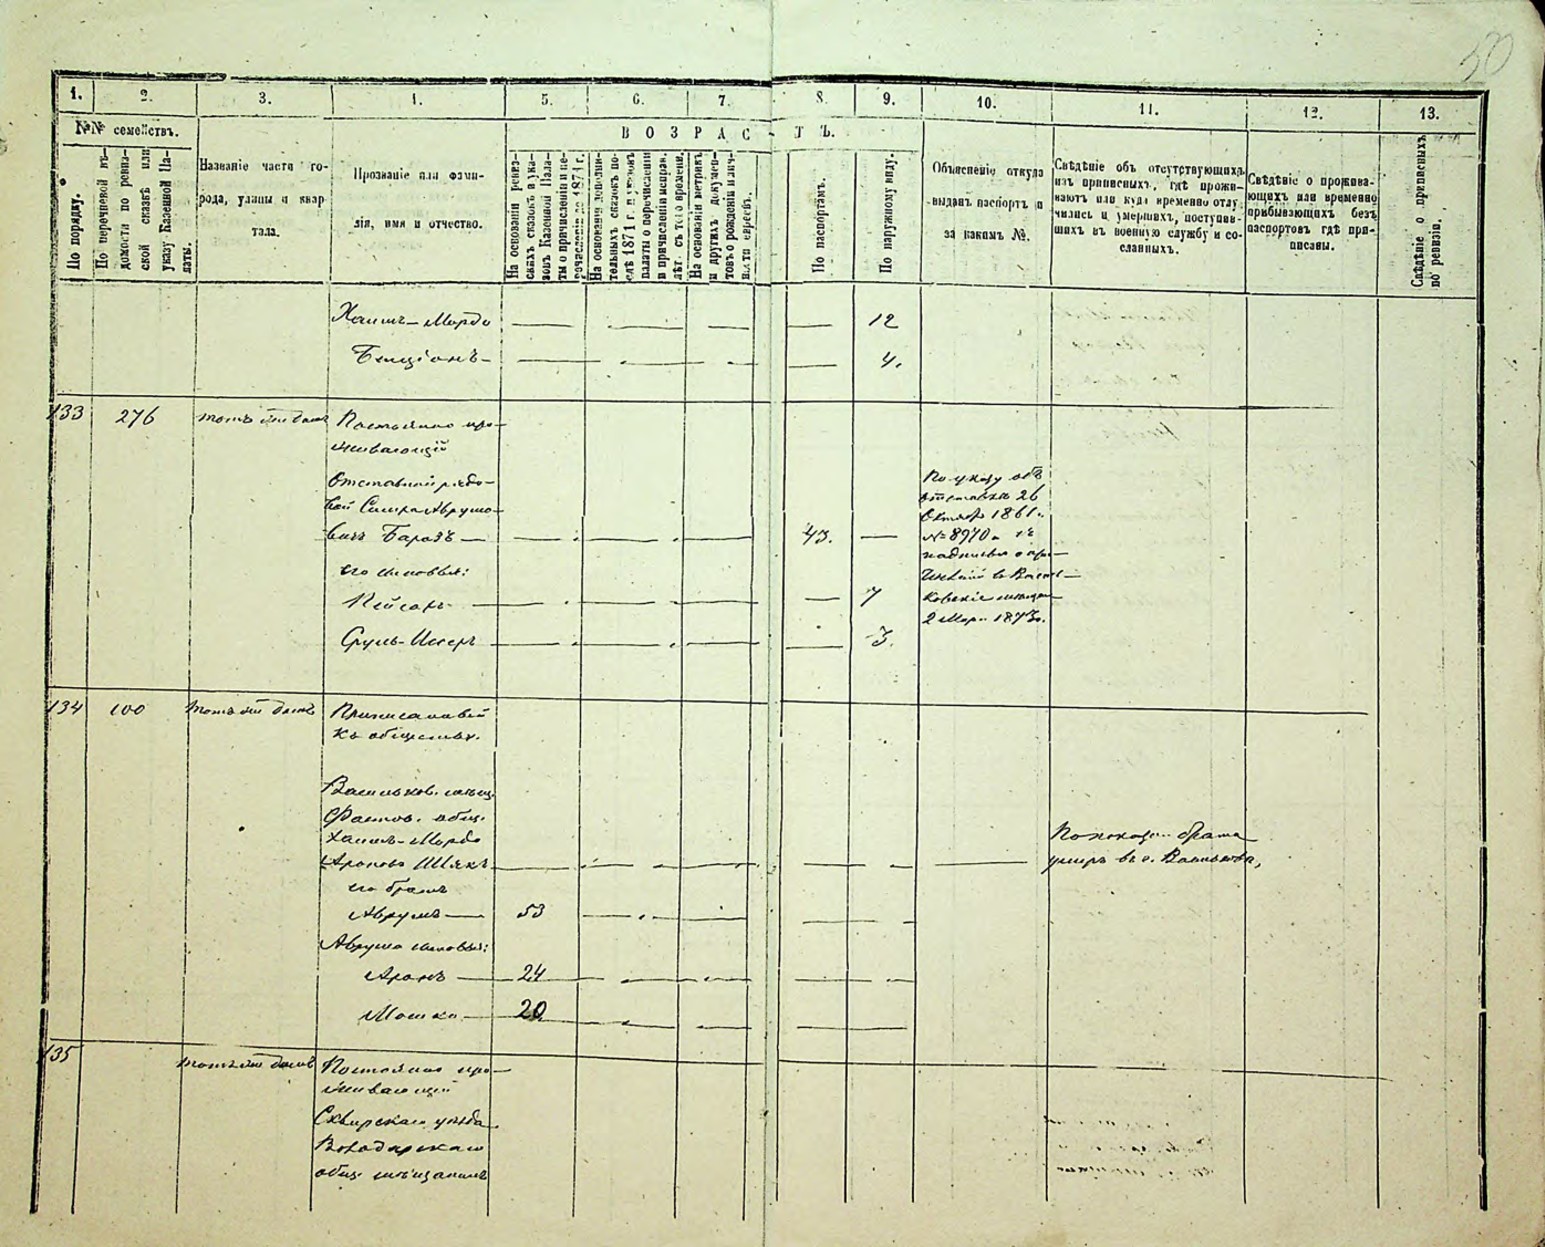 50
1. 2. 3. 4. 5. 6. 7. 8. 9. 10. 11. 12. 13.
№№ семействъ.
По порядку.
По перечневой вѣ-
домости по ревиз-
ской сказкѣ или
указу Казенной Па-
латы.
Названіе части го-
рода, улицы и квар
тала.
Прозваніе или фами-
лія, имя и отчество.
ВОЗРАСТЪ.
На основаніи ревиз-
скихъ сказокъ и ука-
зовъ Казенной Пала-
ты о причисленіи и пе-
речисленіи до 1871 г.
На основаніи дополни-
тельныхъ сказокъ по-
слѣ 1871 г. и указовъ
палаты о перечисленіи
и причисленіи исправ.
лѣт. съ того времени.
На основаніи метрикъ
и другихъ докумен-
товъ о рожденіи и лич-
ности евреевъ.
По паспортамъ.
По наружному виду.
Объясненіе откуда
выданъ паспортъ и
за какимъ №.
Свѣдѣніе объ отсутствующихъ
изъ приписныхъ, гдѣ прожи-
ваютъ или куда временно отлу
чились и умершихъ, поступив-
шихъ въ военную службу и со-
сланныхъ.
Свѣдѣніе о прожива-
ющихъ или временно
прибывающихъ безъ
паспортовъ гдѣ при-
писаны.
Свѣдѣніе о приписныхъ
по ревизіи.
Хаимъ-Мордко 12
Бенціонъ 4.
133 276 тотъ же домъ Постоянно про-
живающій
Отставной рядо-
вой Сапира Аврумо-
вичъ Баразъ 43.
его сыновья:
Лейзоръ 7
Сруль-Иссеръ 3.
По указу объ
отставке 26
Октяб 1861.
№ 8970
надписью о при-
численіи в Василь-
ковскіе мещан-
2 Мар. 1873г.
134 100 тотъ же домъ Приписанный
къ обществу.
Васильков. мѣщ.
Фастов. общ.
Хаимъ-Мордко
Ароновъ Шлякъ
его братъ
Аврумъ 53
Аврума сыновья:
Аронъ 24
Мошко 20
По показан. брата
умеръ въ г. Васильковѣ,
135 тотъ же домъ Постоянно про-
живающій
Сквирскаго уѣзда
Володарскаго
общ. мѣщанинъ